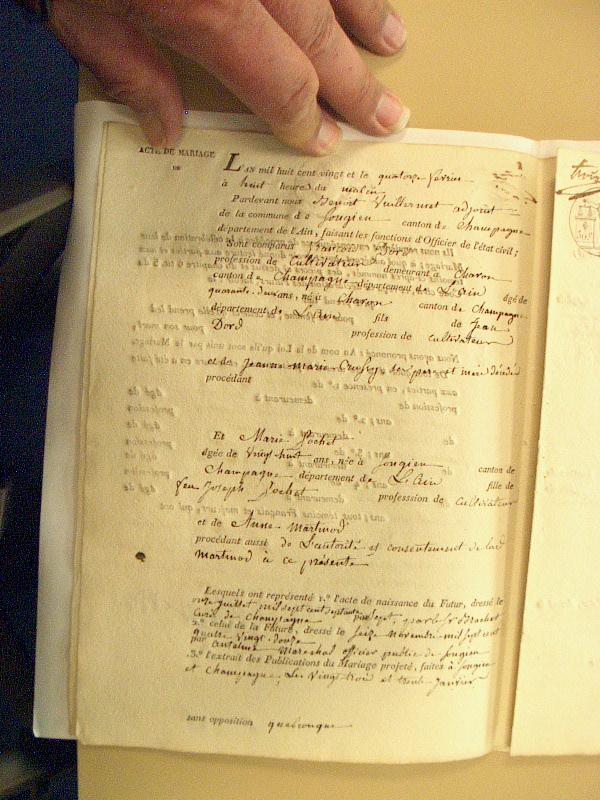 ACTE DE MARIAGE
L'AN mil huit cent vingt et le quatorze fevrier
à huit heures du matin
Pardevant nous Benoit Vuillermet adjoint
de la commune de Songieu canton de Champagne
département de l'Ain, faisant les fonctions d'Officier de l'état civil;
Sont comparus Dord
profession de Cultivateur demeurant à Charon
canton de Champagne département de L'ain âgé de
quarante-deux ans, né à Charon canton de Champagne
département de L'ain fils de Jean
Dord profession de cultivateur
et de Jeanne-marie ses pere et mere décédés
procédant
Et Marie Pochet
âgée de vingt huit ans, née à Songieu canton de
Champagne département de L'ain fille de
feu Joseph Pochet profession de cultivateur
et de Anne Martinod
procédant aussi de L'autorité et consentement de lad
martinod à ce présente
Lesquels ont représenté 1.º l'acte de naissance du Futur, dressé le
onze juillet mil sept cent septante sept, par
curé de Champagne
2.º celui de la Future, dressé le seize novembre mil sept cent
quatre vingt douze
par antelme Marechal officier public de Songieu
3.º l'extrait des Publications du Mariage projeté, faites à Songieu
et Champagne, les vingt trois et trente Janvier
sans opposition quelconque